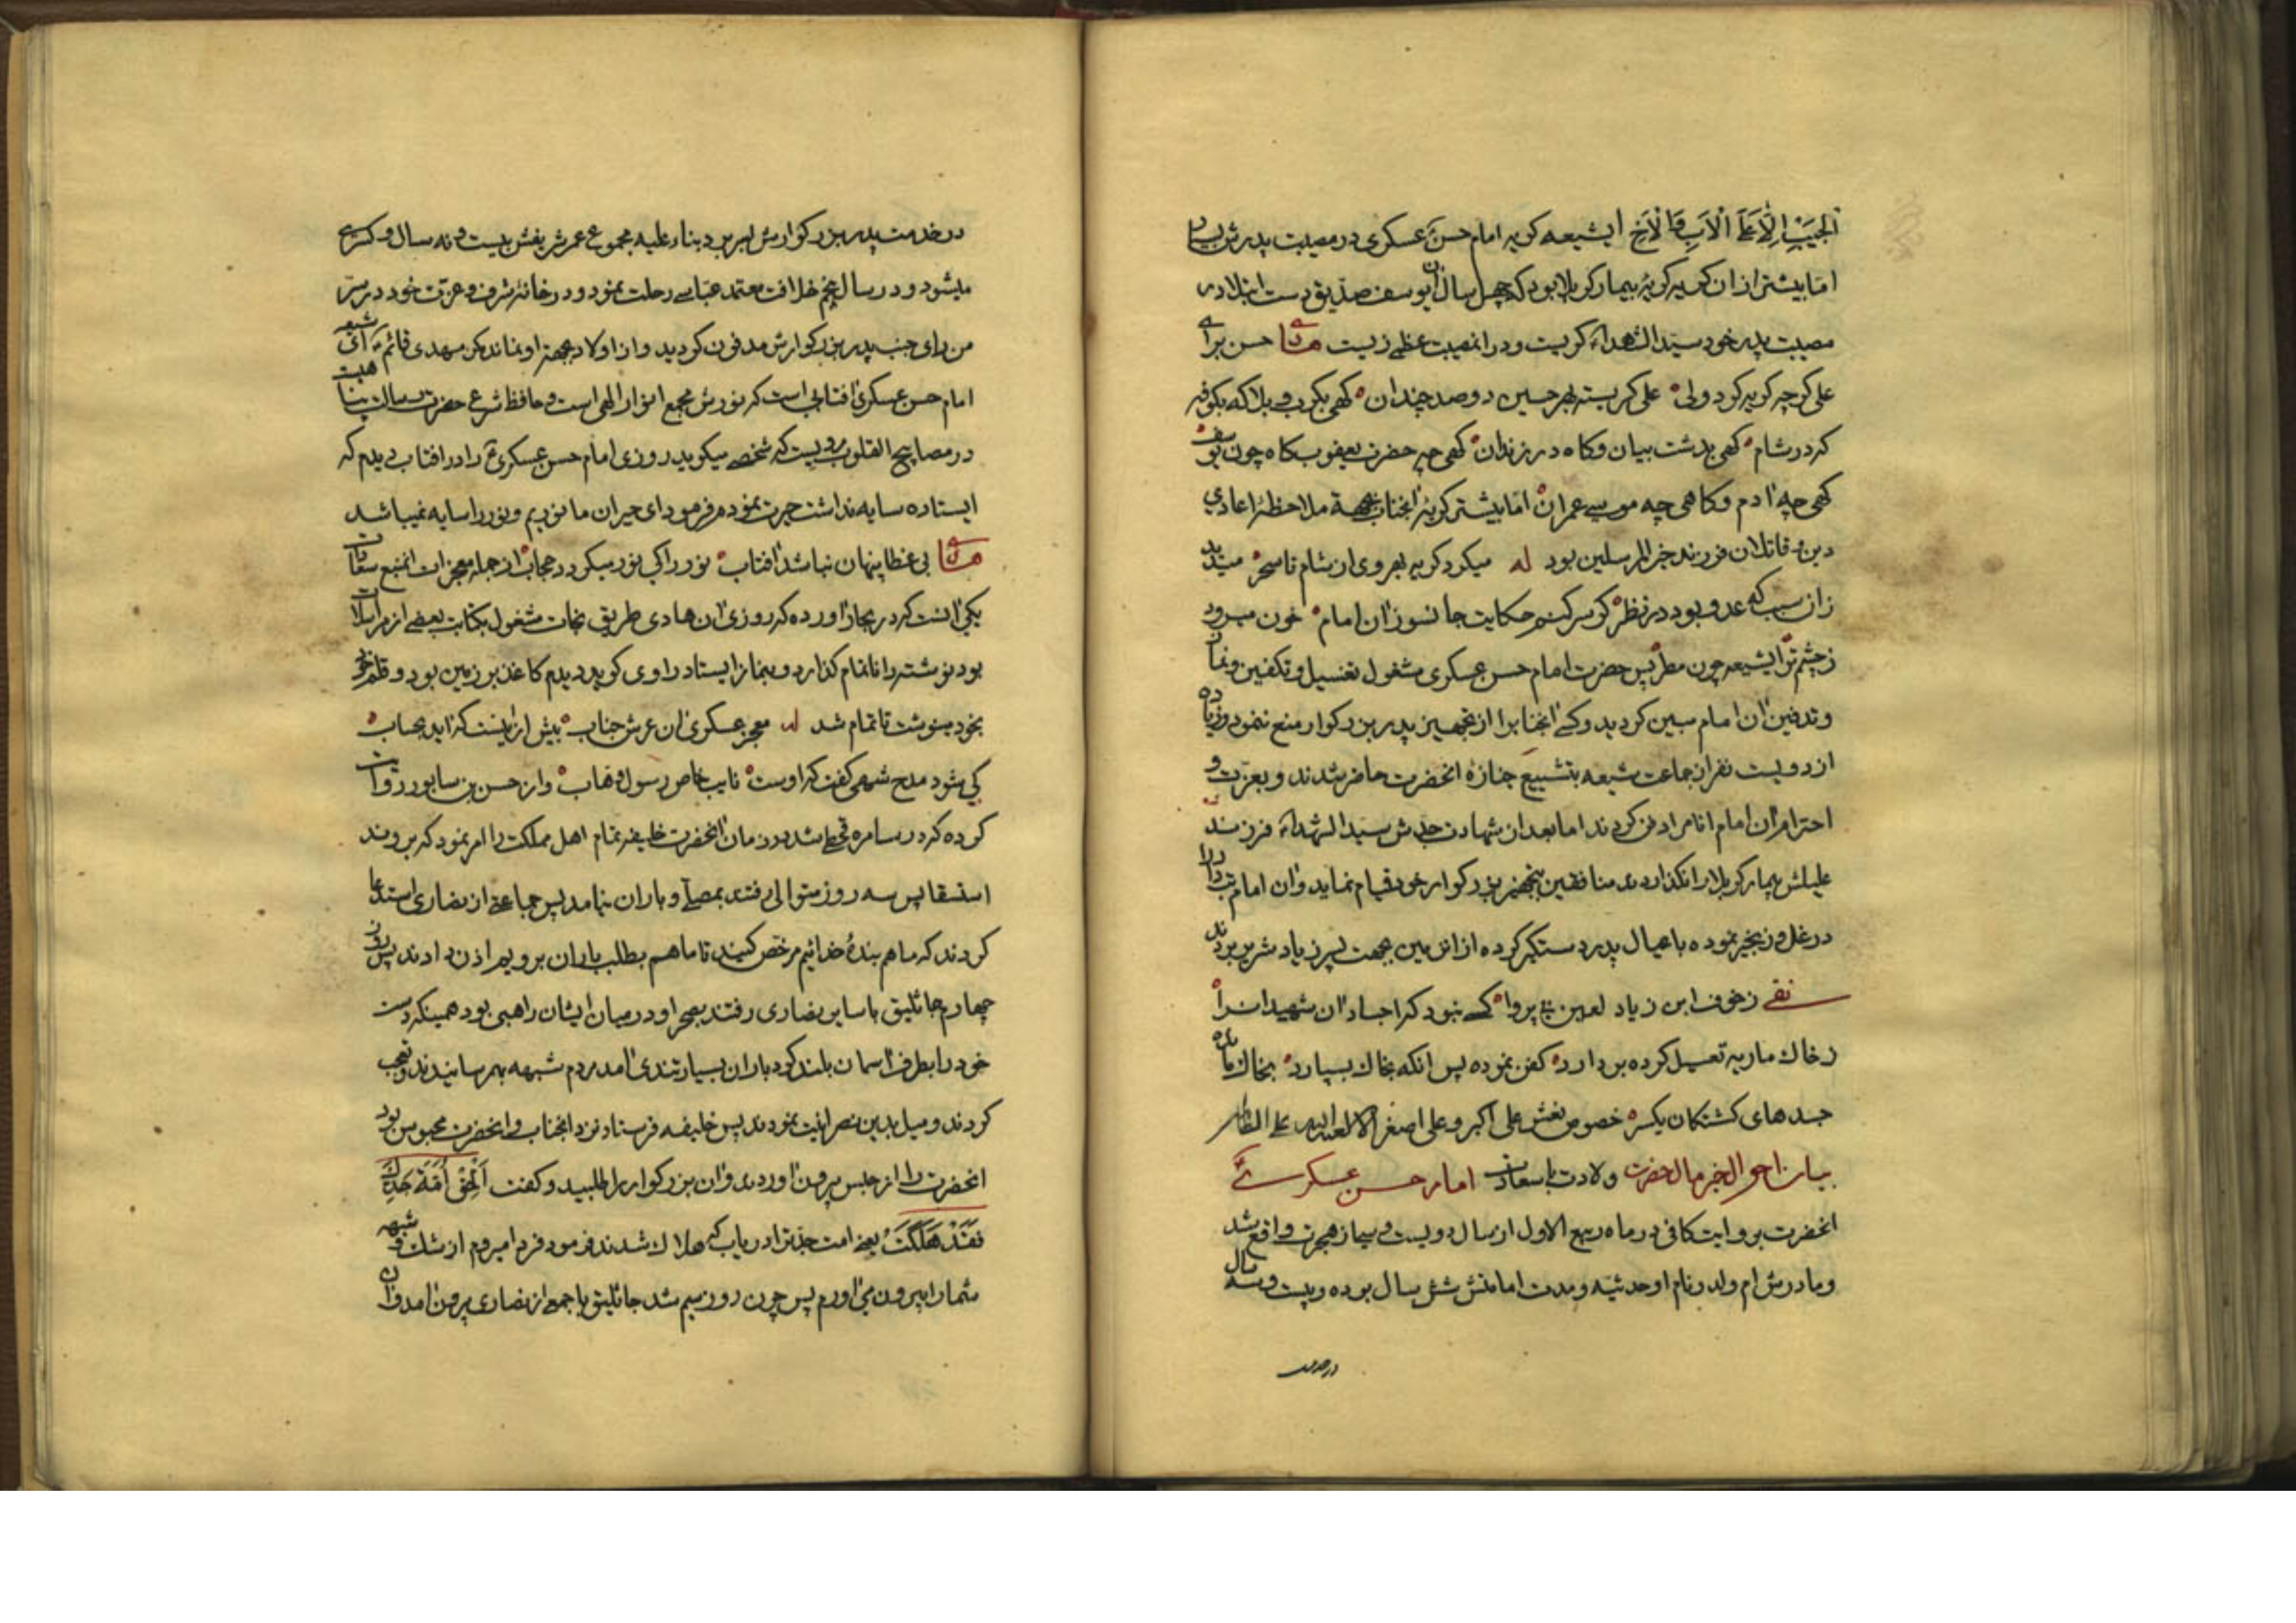 الجیب الا علی الاب و الاخ ای شیعه کریه امام حسن عسکری در مصیبت پدرش بسیار
اما بیشتر از ان کریه کریۀ بیمار کربلا بود که چهل سال ان یوسف صدیق دست ابتلا در
مصیبت پدر خود سید الشهداء کریست و در انمصیبت عظمی زیست حسن برای
علی کرچه کریه کرد ولی علی کریست بهر حسین دو صد چندان کهی بکرب و بلا که بکوفه
که در شام کهی بدشت بیان و کاه در زندان کهی چه حضرت یعقوب کاه چون یوسف
کهی چه ادم و کاهی چه موسی عمران اما بیشتر کریۀ انجناب بجهة ملاحظۀ اعادی
دین و قاتلان فرزند خیر المرسلین بود له میکرد کریه بهر وی از شام تا سحر میدید
زان سبب که عدو بود در نظر کر سر کنم حکایت جانسوز ان امام خون میرود
ز چشم تر ایشیعه چون مطر پس حضرت امام حسن عسکری مشغول تغسیل و تکفین و نماز
و تدفین ان امام مبین کردید و کسی انجنابرا از تجهیز پدر بزرکوار منع ننمود و زیاده
از دویست نفر از جماعت شیعه بتشییع جنازه انحضرت حاضر شدند و بعزت و
احترام ان امام انام را دفن کردند اما بعد از شهادت جدش سید الشهداء فرزند
علیلش بیمار کربلا را نکذاردند منافقین بتجهیز بزرکوار خود قیام نماید و ان امام تبدار را
در غل و زنجیر نموده با عیال پدر دستکیر کرده از ان زمین بجهت پسر زیاد شریر بردند
نقی ز خوف ابن زیاد لعین بی پروا کسی نبود که اجساد ان شهیدان را
ز خاک ماریه تغسیل کرده بردارد کفن نموده پس انکه بخاک بسپارد بخاک ماند
جسدهای کشتکان یکسر خصوص نعش علی اکبر و علی اصغر الا لعنة الله علی الظا
بیان احوال خیر مال حضرت ولادت باسعادت امام حسن عسکری
انحضرت بروایت کافی در ماه ربیع الاول از سال دویست و سی از هجرت واقع شد
و مادرش ام ولد و نام او حدثیه و مدت امامتش شش سال بوده و بیست و سه سال
در خدمت
در خدمت پدر بزرکوارش بسر برد بناء علیه مجموع عمر شریفش بیست و نه سال و کسری
میشود و در سال پنجم خلافت معتمد عباسی رحلت نمود و در خانۀ شرف و عزت خود در سر
من رای جنب پدر بزرکوارش مدفون کردید و از اولاد بجهة او نماند مکر مهدی قائم ای شیعه
امام حسن عسکری افتابی است که نورش مجمع انوار الهی است و حافظ شرع حضرت رسالت پناهیست
در مصابیح القلوب مرویست که شخصی میکوید روزی امام حسن عسکری را در افتاب دیدم که
ایستاده سایه نداشت حیرت نمودم فرمود ای حیران ما نوریم و نور را سایه نمیباشد
بی غطا پنهان نباشد افتاب نور را کی نور میکردد حجاب از جمله معجزات انمنبع سعادت
یکی انست که در بحار اورده که روزی ان هادی طریق نجات مشغول بکتابت بعضی از مراسلات
بود نوشته را ناتمام کذارد و بنماز ایستاد راوی کوید دیدم کاغذ بر زمین بود و قلم خود
بخود مینوشت تا تمام شد له معجز عسکری ان عرش جناب بیش از اینست که اید بحساب
کی شود مدح شهی کفت که اوست نایب خاص رسول وهاب و از حسن بن سابور روایت
کرده که در سامره قحطی شد در زمان انحضرت خلیفه تمام اهل مملکت را امر نمود که بروند
استسقا پس سه روز متوالی رفتند بمصلی و باران نیامد پس جماعتی از نصاری استدعا
کردند که ما هم بندۀ خدائیم مرخص کنید تا ما هم بطلب باران برویم اذن دادند پس روز
چهارم جاثلیق با سایر نصاری رفتند بصحرا و در میان ایشان راهبی بود همینکه دست
خود را بطرف اسمان بلند کرد باران بسیار تندی امد مردم شبهه بهم رسانیدند و تعجب
کردند و میل بدین نصرانیت نمودند پس خلیفه فرستاد نزد انجناب و انحضرت محبوس بود
انحضرت را از حبس بیرون اوردند و ان بزرکوار را طلبید و کفت الحق امة جدک
فقد هلکت یعنی امت جدترا دریاب که هلاک شدند فرمود فردا میروم از شک و شبهه
شما را بیرون می اورم پس چون روز سیم شد جاثلیق با جمعی از نصاری بیرون امد و ان